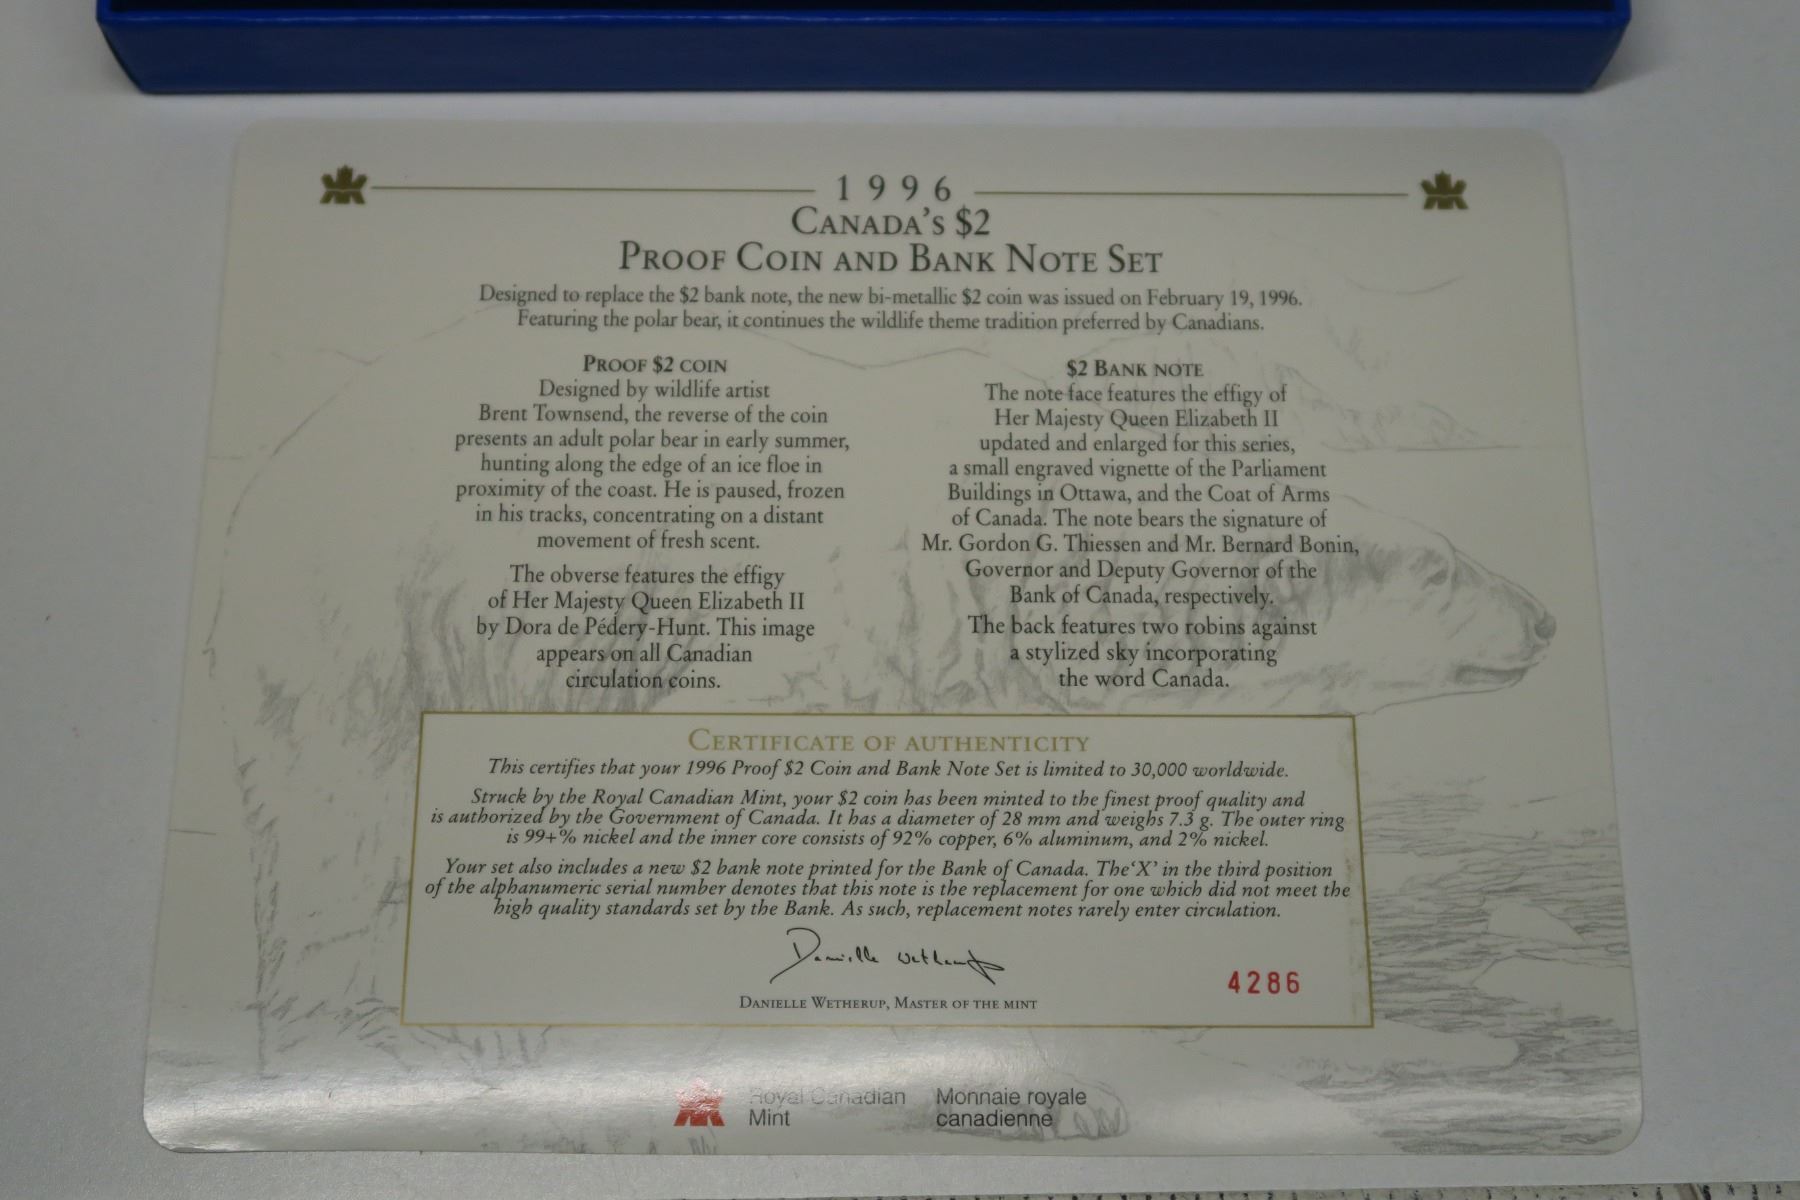 1996
CANADA'S $2
PROOF COIN AND BANK NOTE SET
Designed to replace the $2 bank note, the new bi-metallic $2 coin was issued on February 19, 1996.
Featuring the polar bear, it continues the wildlife theme tradition preferred by Canadians.
PROOF $2 COIN
Designed by wildlife artist
Brent Townsend, the reverse of the coin
presents an adult polar bear in early summer,
hunting along the edge of an ice floe in
proximity of the coast. He is paused, frozen
in his tracks, concentrating on a distant
movement of fresh scent.
The obverse features the effigy
of Her Majesty Queen Elizabeth II
by Dora de Pédery-Hunt. This image
appears on all Canadian
circulation coins.
$2 BANK NOTE
The note face features the effigy of
Her Majesty Queen Elizabeth II
updated and enlarged for this series,
a small engraved vignette of the Parliament
Buildings in Ottawa, and the Coat of Arms
of Canada. The note bears the signature of
Mr. Gordon G. Thiessen and Mr. Bernard Bonin,
Governor and Deputy Governor of the
Bank of Canada, respectively.
The back features two robins against
a stylized sky incorporating
the word Canada.
CERTIFICATE OF AUTHENTICITY
This certifies that your 1996 Proof $2 Coin and Bank Note Set is limited to 30,000 worldwide.
Struck by the Royal Canadian Mint, your $2 coin has been minted to the finest proof quality and
is authorized by the Government of Canada. It has a diameter of 28 mm and weighs 7.3 g. The outer ring
is 99+% nickel and the inner core consists of 92% copper, 6% aluminum, and 2% nickel.
Your set also includes a new $2 bank note printed for the Bank of Canada. The 'X' in the third position
of the alphanumeric serial number denotes that this note is the replacement for one which did not meet the
high quality standards set by the Bank. As such, replacement notes rarely enter circulation.
Danielle Wetherup
DANIELLE WETHERUP, MASTER OF THE MINT
4286
Royal Canadian
Mint
Monnaie royale
canadienne